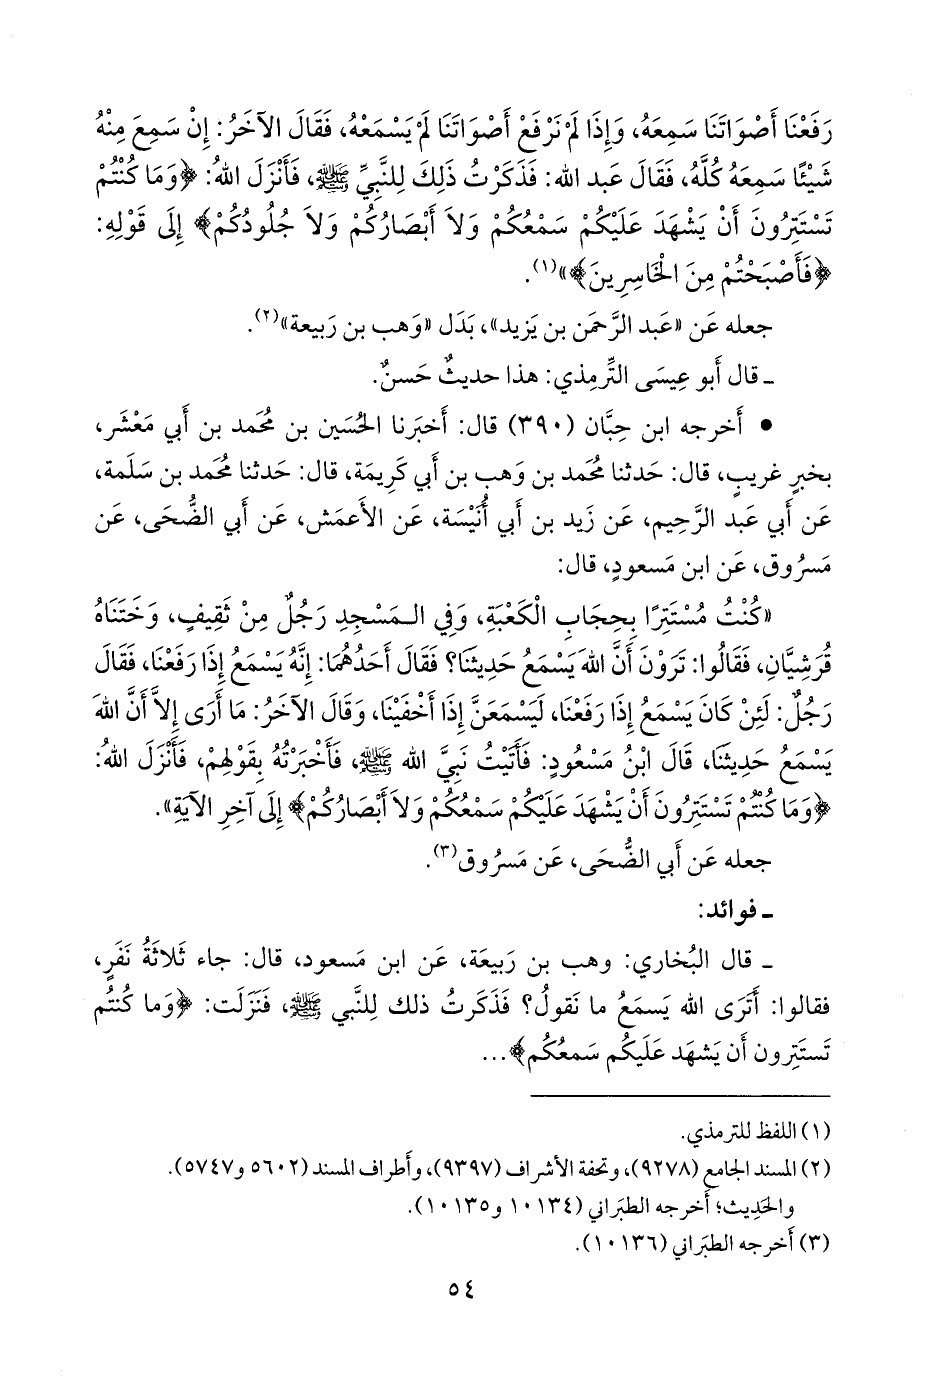 رَفَعْنَا أَصْوَاتَنَا سَمِعَهُ، وَإِذَا لَمْ نَرْفَعْ أَصْوَاتَنَا لَمْ يَسْمَعْهُ، فَقَالَ الآخَرُ: إِنْ سَمِعَ مِنْهُ
شَيْئًا سَمِعَهُ كُلَّهُ، فَقَالَ عَبد الله: فَذَكَرْتُ ذَلِكَ لِلنَّبِيِّ ﷺ، فَأَنْزَلَ اللهُ: ﴿وَمَا كُنْتُمْ
تَسْتَتِرُونَ أَنْ يَشْهَدَ عَلَيْكُمْ سَمْعُكُمْ وَلاَ أَبْصَارُكُمْ وَلاَ جُلُودُكُمْ﴾ إِلَى قَوْلِهِ:
﴿فَأَصْبَحْتُمْ مِنَ الْخَاسِرِينَ﴾»(١).
جعله عَن «عَبد الرَّحمَن بن يَزيد»، بَدَل «وَهب بن رَبيعة»(٢).
ـ قال أَبو عِيسَى التِّرمِذي: هذا حديثٌ حَسنٌ.
• أَخرجه ابن حِبَّان (٣٩٠) قال: أَخبَرنا الحُسَين بن مُحمد بن أَبي مَعْشَر،
بخبرٍ غريبٍ، قال: حَدثنا مُحمد بن وَهب بن أَبي كَرِيمَة، قال: حَدثنا مُحمد بن سَلَمة،
عَن أَبي عَبد الرَّحِيم، عَن زَيد بن أَبي أُنَيْسَة، عَن الأَعمَش، عَن أَبي الضُّحَى، عَن
مَسرُوق، عَن ابن مَسعودٍ، قال:
«كُنْتُ مُسْتَتِرًا بِحِجَابِ الْكَعْبَةِ، وَفِي الْمَسْجِدِ رَجُلٌ مِنْ ثَقِيفٍ، وَخَتَنَاهُ
قُرَشِيَّانِ، فَقَالُوا: تَرَوْنَ أَنَّ اللهَ يَسْمَعُ حَدِيثَنَا؟ فَقَالَ أَحَدُهُمَا: إِنَّهُ يَسْمَعُ إِذَا رَفَعْنَا، فَقَالَ
رَجُلٌ: لَئِنْ كَانَ يَسْمَعُ إِذَا رَفَعْنَا، لَيَسْمَعَنَّ إِذَا أَخْفَيْنَا، وَقَالَ الآخَرُ: مَا أَرَى إِلاَّ أَنَّ اللهَ
يَسْمَعُ حَدِيثَنَا، قَالَ ابْنُ مَسْعُودٍ: فَأَتَيْتُ نَبِيَّ الله ﷺ، فَأَخْبَرْتُهُ بِقَوْلِهِمْ، فَأَنْزَلَ اللهُ:
﴿وَمَا كُنْتُمْ تَسْتَتِرُونَ أَنْ يَشْهَدَ عَلَيْكُمْ سَمْعُكُمْ وَلاَ أَبْصَارُكُمْ﴾ إِلَى آخِرِ الآيَةِ».
جعله عَن أَبي الضُّحَى، عَن مَسرُوق(٣).
ـ فوائد:
ـ قال البُخاري: وهب بن رَبيعَة، عَن ابن مَسعود، قال: جاء ثَلاثَةُ نَفَرٍ،
فقالوا: أَتَرَى الله يَسمَعُ ما نَقولُ؟ فَذَكَرتُ ذلك لِلنَّبي ﷺ، فَنَزَلَت: ﴿وَما كُنتُم
تَستَتِرون أَن يَشهَد عَلَيكُم سَمعُكُم﴾...
(١) اللفظ للترمذي.
(٢) المسند الجامع (٩٢٧٨)، وتحفة الأشراف (٩٣٩٧)، وأطراف المسند (٥٦٠٢ و٥٧٤٧).
والحَدِيث؛ أخرجه الطبَراني (١٠١٣٤ و١٠١٣٥).
(٣) أخرجه الطبَراني (١٠١٣٦).
٥٤